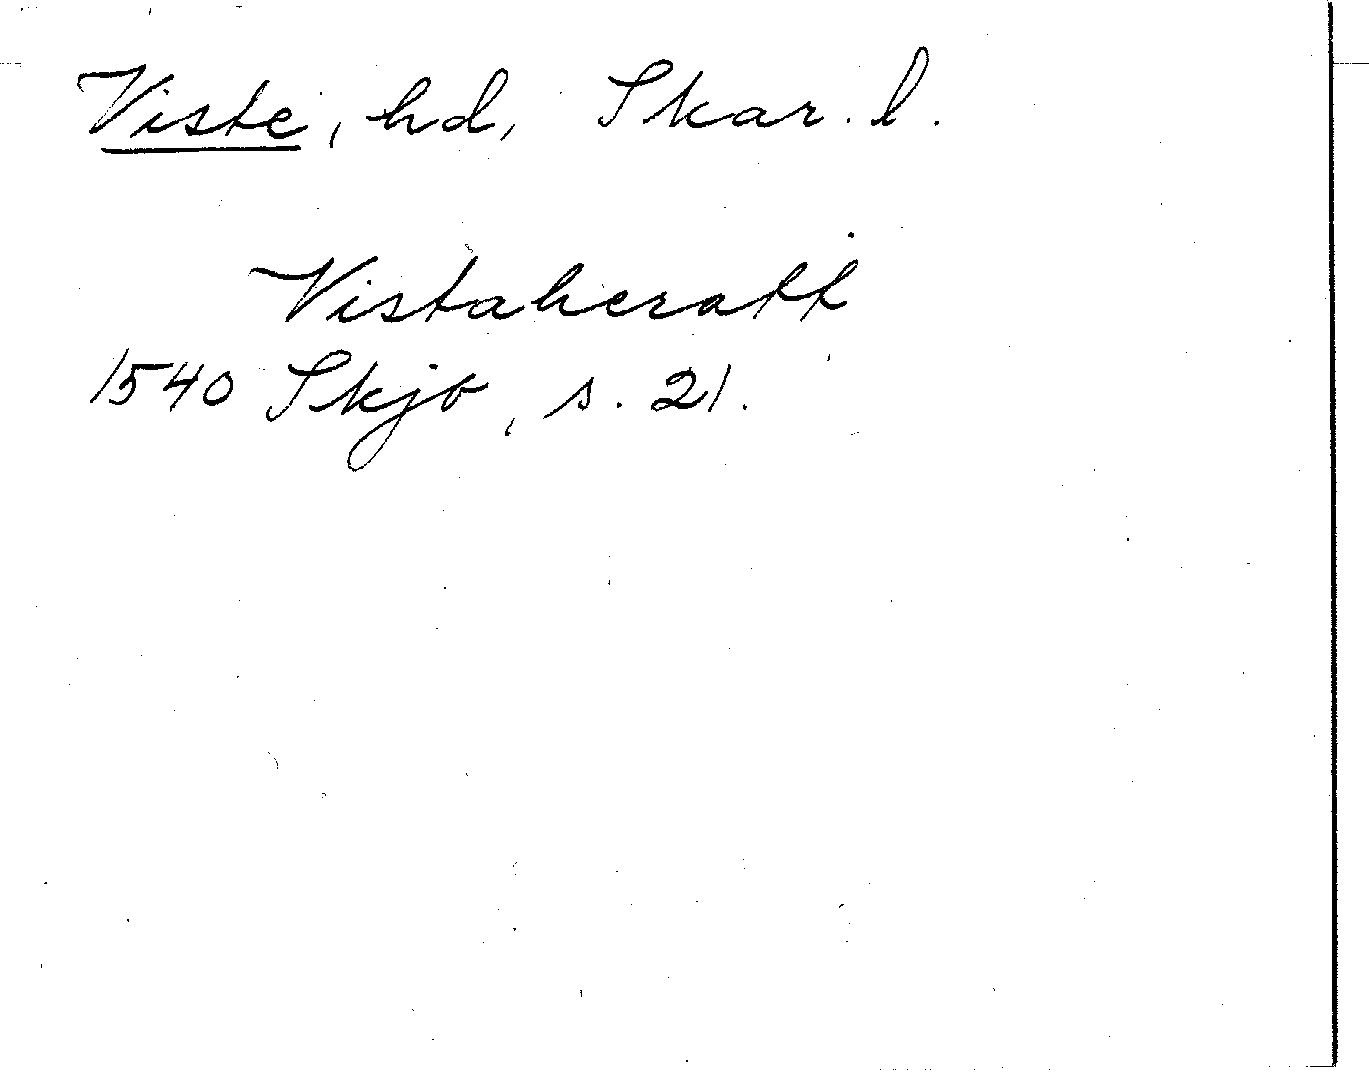 Viste, hd, Skar. l.
Vistaheratt
1540 Skjb, s. 21.